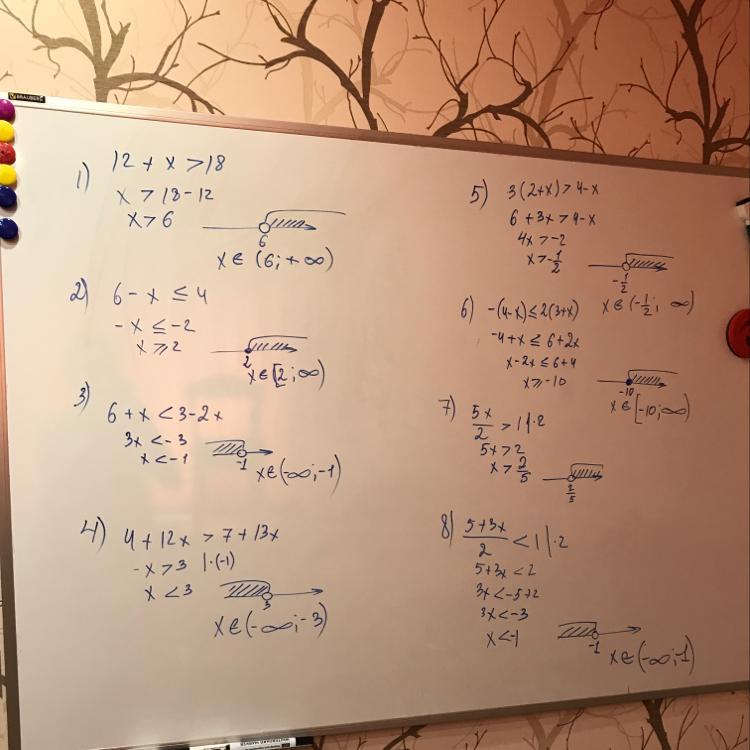 BRAUBERG
1)
12 + x > 18
x > 18 - 12
x > 6
6
x ∈ (6; + ∞)
2)
6 - x ≤ 4
-x ≤ -2
x ≥ 2
2
x ∈ [2; ∞)
3)
6 + x < 3 - 2x
3x < -3
x < -1
-1
x ∈ (-∞; -1)
4)
4 + 12x > 7 + 13x
-x > 3 | ·(-1)
x < 3
3
x ∈ (-∞; -3)
5)
3(2+x) > 4-x
6 + 3x > 4-x
4x > -2
x > -1/2
-1/2
x ∈ (-1/2; ∞)
6)
-(4-x) ≤ 2(3+x)
-4+x ≤ 6+2x
x-2x ≤ 6+4
x ≥ -10
-10
x ∈ [-10; ∞)
7)
5x/2 > 1 | ·2
5x > 2
x > 2/5
2/5
8)
5+3x/2 < 1 | ·2
5+3x < 2
3x < -5+2
3x < -3
x < -1
-1
x ∈ (-∞; -1)